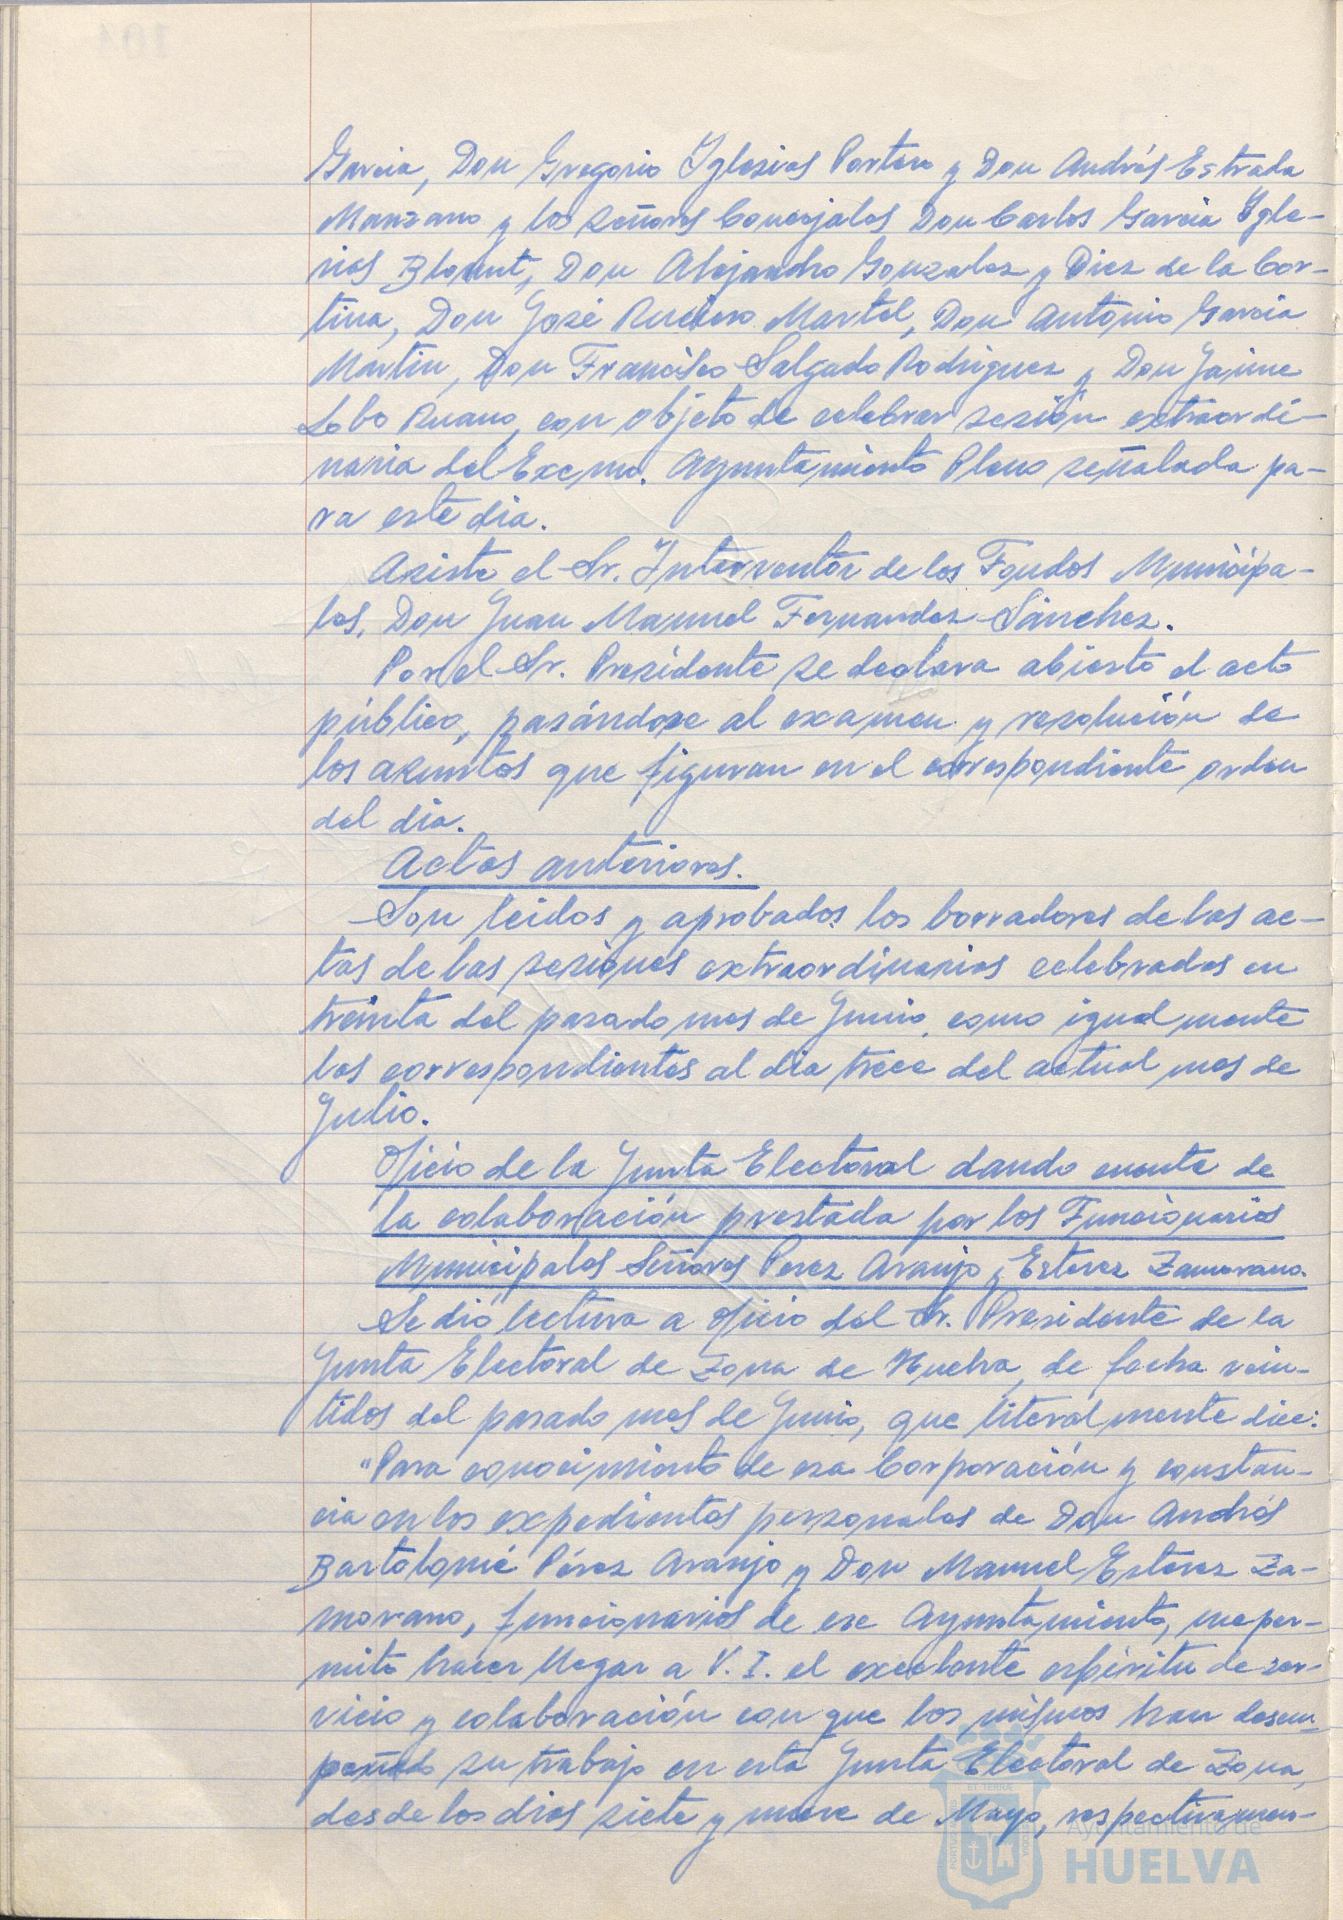 Garcia, Don Gregorio Yglesias Portero y Don Andrés Estrada
Manzano y los Señores Concejales Don Carlos Garcia Ygle-
sias Blount, Don Alejandro Gonzalez y Diez de la Cor-
tina, Don José Rucero Martel, Don Antonio Garcia
Martin, Don Francisco Salgado Rodriguez y Don Jaime
Lobo Ruano, con objeto de celebrar sesión extraordi-
naria del Excmo. Ayuntamiento Pleno señalada pa-
ra este dia.
Asiste el Sr. Interventor de los Fondos Municipa-
les, Don Juan Manuel Fernandez Sánchez.
Por el Sr. Presidente se declara abierto el acto
público, pasándose al examen y resolución de
los asuntos que figuran en el correspondiente orden
del dia.
Actas anteriores.
Son leidos y aprobados los borradores de las ac-
tas de las sesiones extraordinarias celebradas en
treinta del pasado mes de Junio, como igualmente
las correspondientes al dia trece del actual mes de
Julio.
Oficio de la Junta Electoral dando cuenta de
la colaboración prestada por los Funcionarios
Municipales Señores Perez Araujo y Esterez Zamorano.
Se dió lectura a oficio del Sr. Presidente de la
Junta Electoral de Zona de Huelva, de fecha vein-
tidos del pasado mes de Junio, que literalmente dice:
"Para conocimiento de esa Corporación y constan-
cia en los expedientes personales de Don Andrés
Bartolomé Pérez Araujo y Don Manuel Esterez Za-
morano, funcionarios de ese Ayuntamiento, me per-
mito hacer llegar a V. I. el excelente espiritu de ser-
vicio y colaboración con que los mismos han desem-
peñado su trabajo en esta Junta Electoral de Zona,
desde los dias siete y nueve de Mayo, respectivamen-
Ayuntamiento de
HUELVA